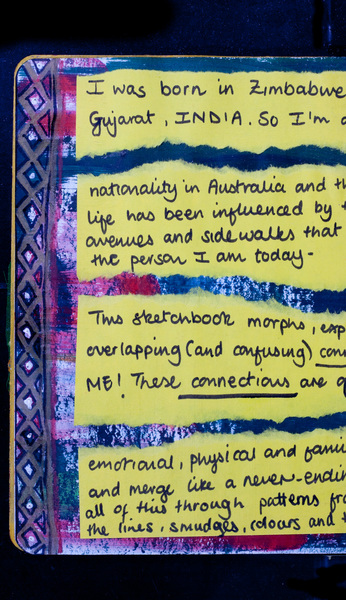 I was born in Zimbabwe
Gujarat, INDIA. So I'm a
nationality in Australia and th
life has been influenced by t
avenues and sidewalks that
the person I am today-
This sketchbook morphs, exp
overlapping (and confusing) con
ME! These connections are of
emotional, physical and famil
and merge like a never-endin
all of this through patterns fro
the lines, smudges, colours and t